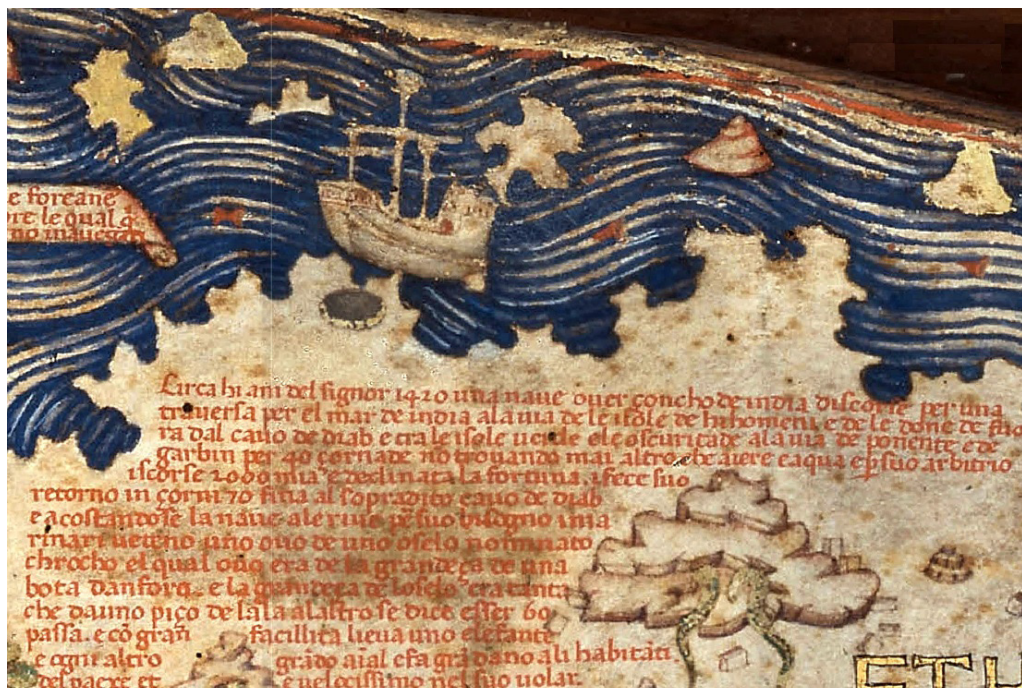 e foreane
le qual q̃
no nauegar
Circa hi ani del signor 1420 una naue ouer çoncho de india discorse per una
trauersa per el mar de india ala uia de le isole de hi homeni e de le done de fuo
ra dal cauo de diab e tra le isole uerde e le oscuritade ala uia de ponente e de
garbin per 40 çornade no trouando mai altro che aiere e aqua e p̱ suo arbitrio
iscorse 2000 mia e declinata la fortuna i fece suo
retorno in çorni 70 fina al sopradito cauo de diab
e acostandose la naue ale riue p̱ suo bisogno i ma
rinari uedeno uno ouo de uno oselo nominato
chrocho el qual ouo era de la grandeça de una
bota danfora e la grandeça de loselo era tanta
che da uno piço de lala a laltro se dice esser 60
passa. e cõ gran facilità lieua uno elefante
e ogni altro grãdo aĩal e fa grã dano a li habitãti
del paexe et e uelocissimo nel suo uolar.
ETH